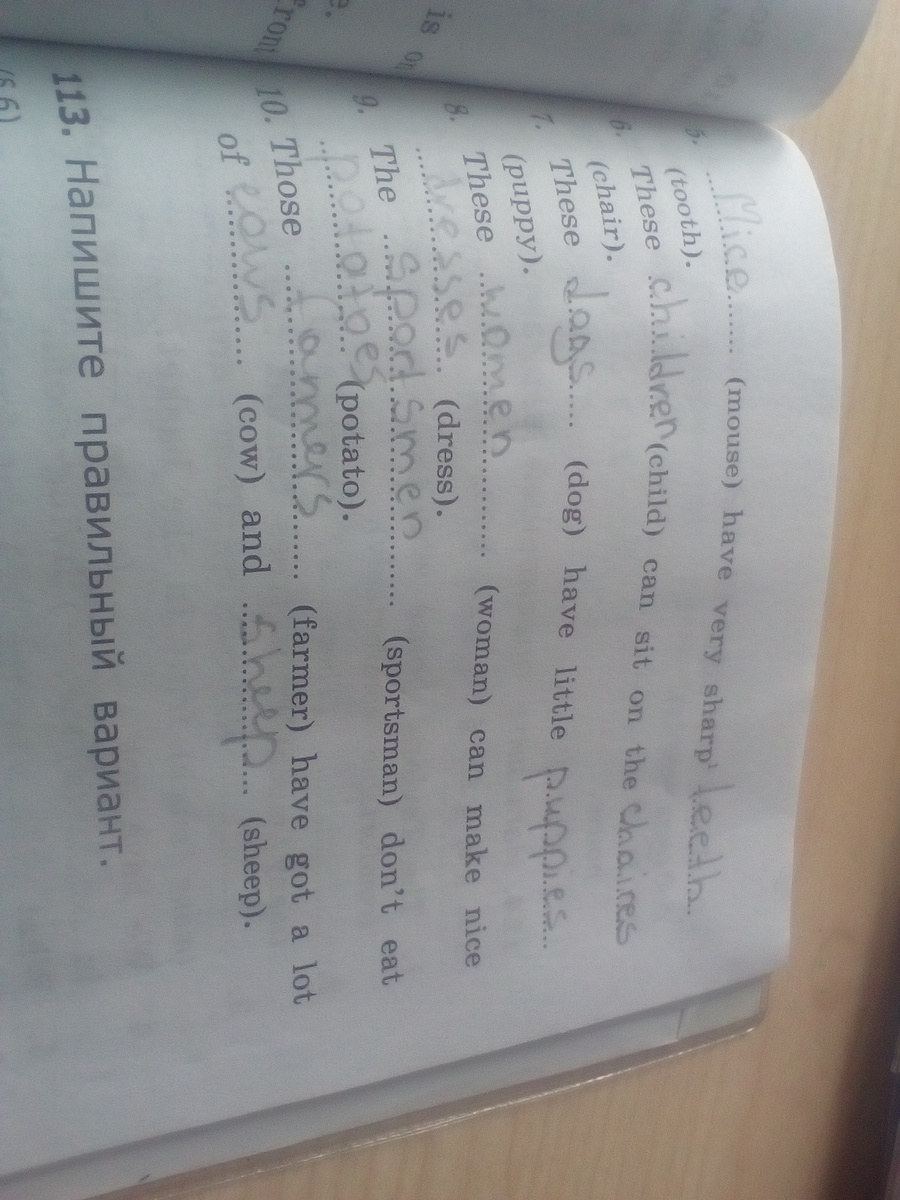 is
front
5. Mice (mouse) have very sharp¹ teeth
(tooth).
6. These children (child) can sit on the chaires
(chair).
7. These dogs (dog) have little puppies
(puppy).
8. These women (woman) can make nice
dresses (dress).
9. The sportsmen (sportsman) don't eat
potatoes (potato).
10. Those farmers (farmer) have got a lot
of cows (cow) and sheep (sheep).
113. Напишите правильный вариант.